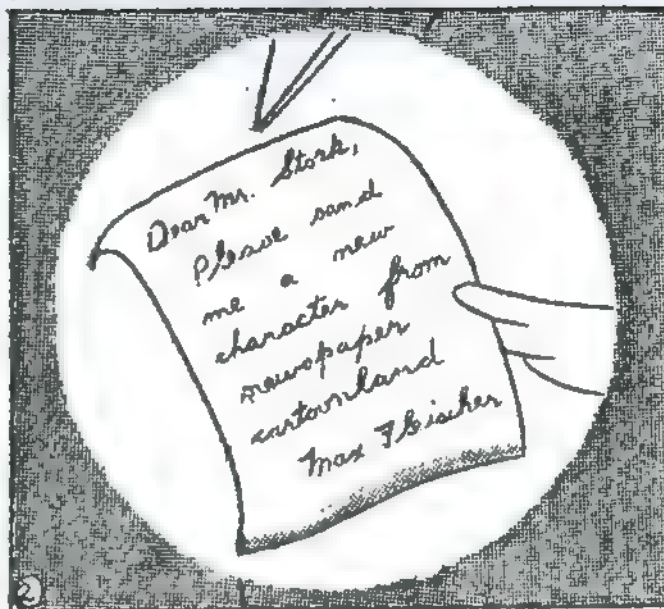 Dear Mr. Stork,
Please send
me a new
character from
newspaper
cartoonland
Max Fleischer
2